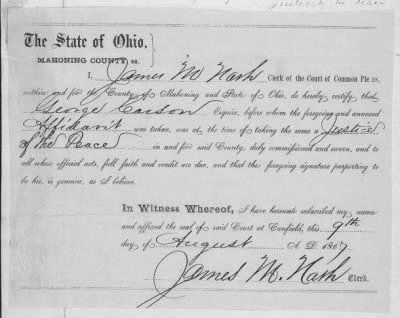 The State of Ohio,
MAHONING COUNTY ss.
I, James M Nash Clerk of the Court of Common Pleas,
within and for the County of Mahoning and State of Ohio, do hereby certify, that
George Carson Esquire, before whom the foregoing and annexed
Affidavit was taken, was at the time of taking the same a Justice
of the Peace in and for said County, duly commissioned and sworn, and to
all whose official acts, full faith and credit are due, and that the foregoing signature purporting to
be his, is genuine, as I believe.
In Witness Whereof, I have hereunto subscribed my name
and affixed the seal of said Court at Canfield, this 9th
day of August A.D. 1867
James M. Nash Clerk.